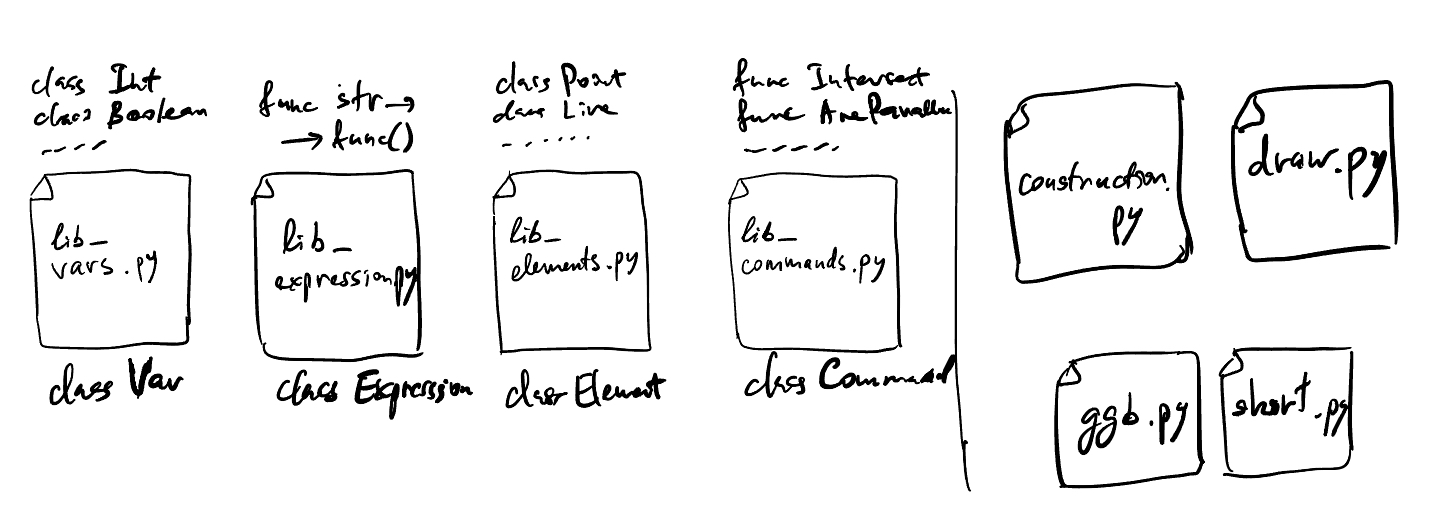 class Int
class Boolean
-----
lib_
vars.py
class Var
func str →
→ func()
lib_
expression.py
class Expression
class Point
class Line
- ......
lib_
elements.py
class Element
func Intersect
func AreParallel
-----
lib_
commands.py
class Command
construction.
py
draw.py
ggb.py
short.py